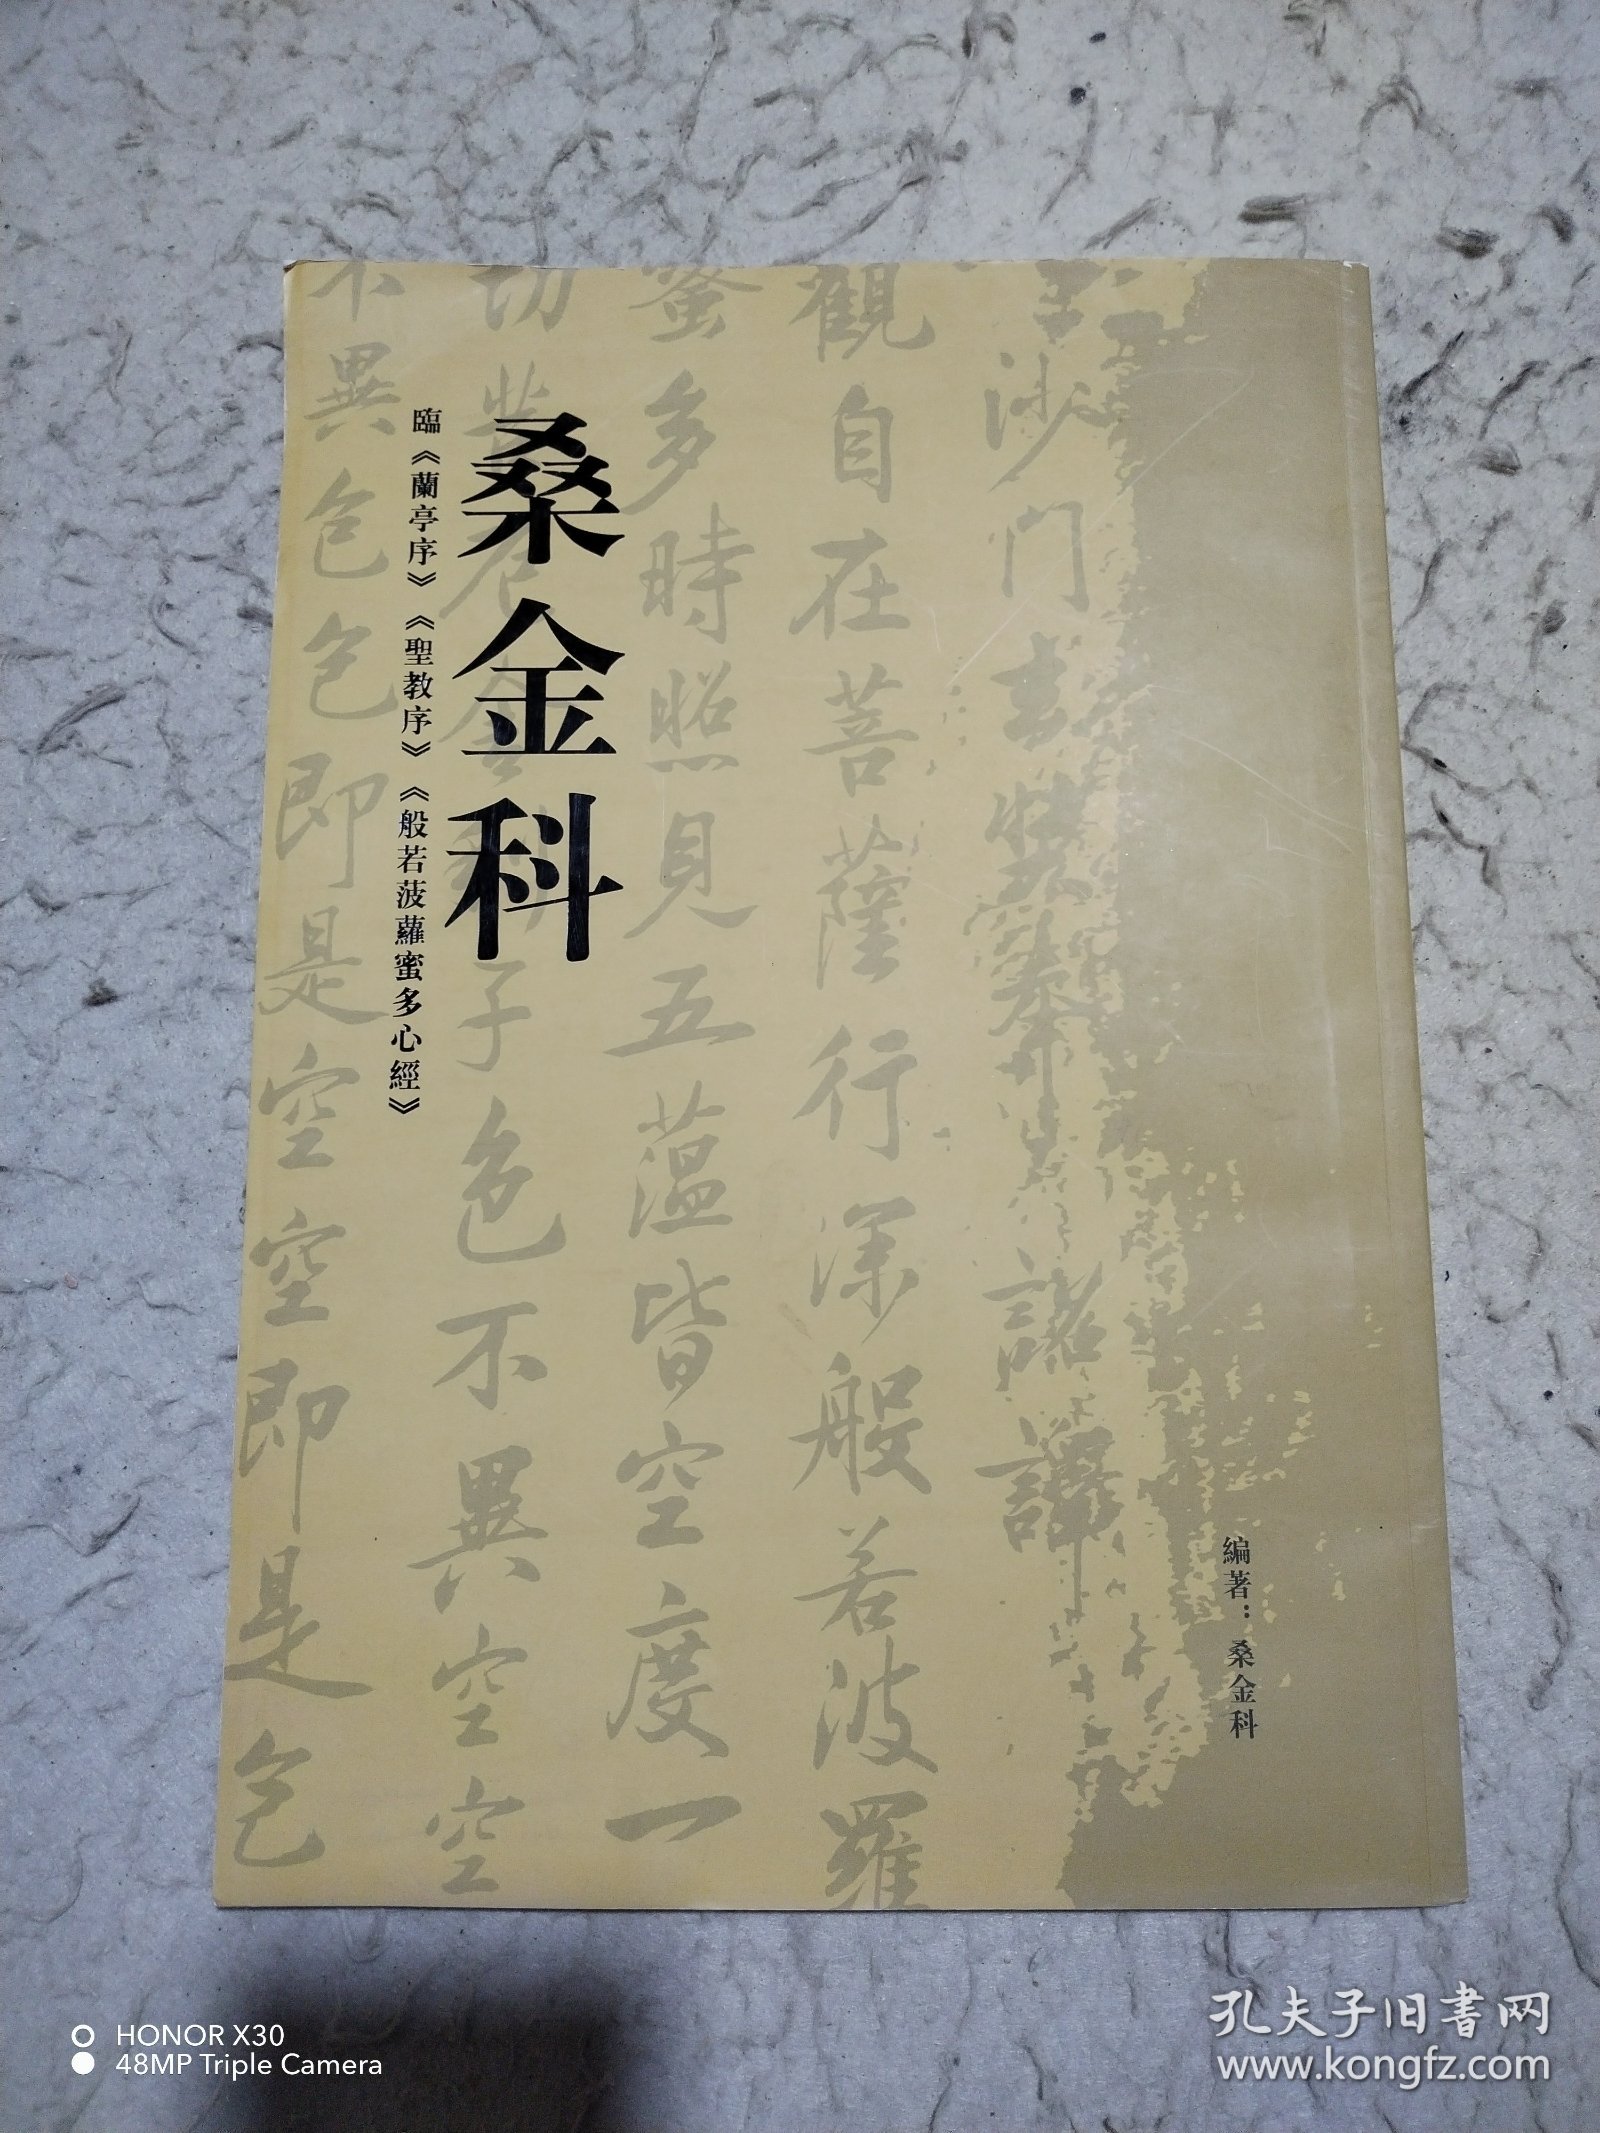 桑金科
臨《蘭亭序》《聖教序》《般若菠蘿蜜多心經》
沙門
諸譯
觀自在菩薩行深般若波羅
蜜多時照見五蘊皆空度一
切
子色不異空空
不異色色即是空空即是色
編著：桑金科
孔夫子旧書网
www.kongfz.com
HONOR X30
48MP Triple Camera